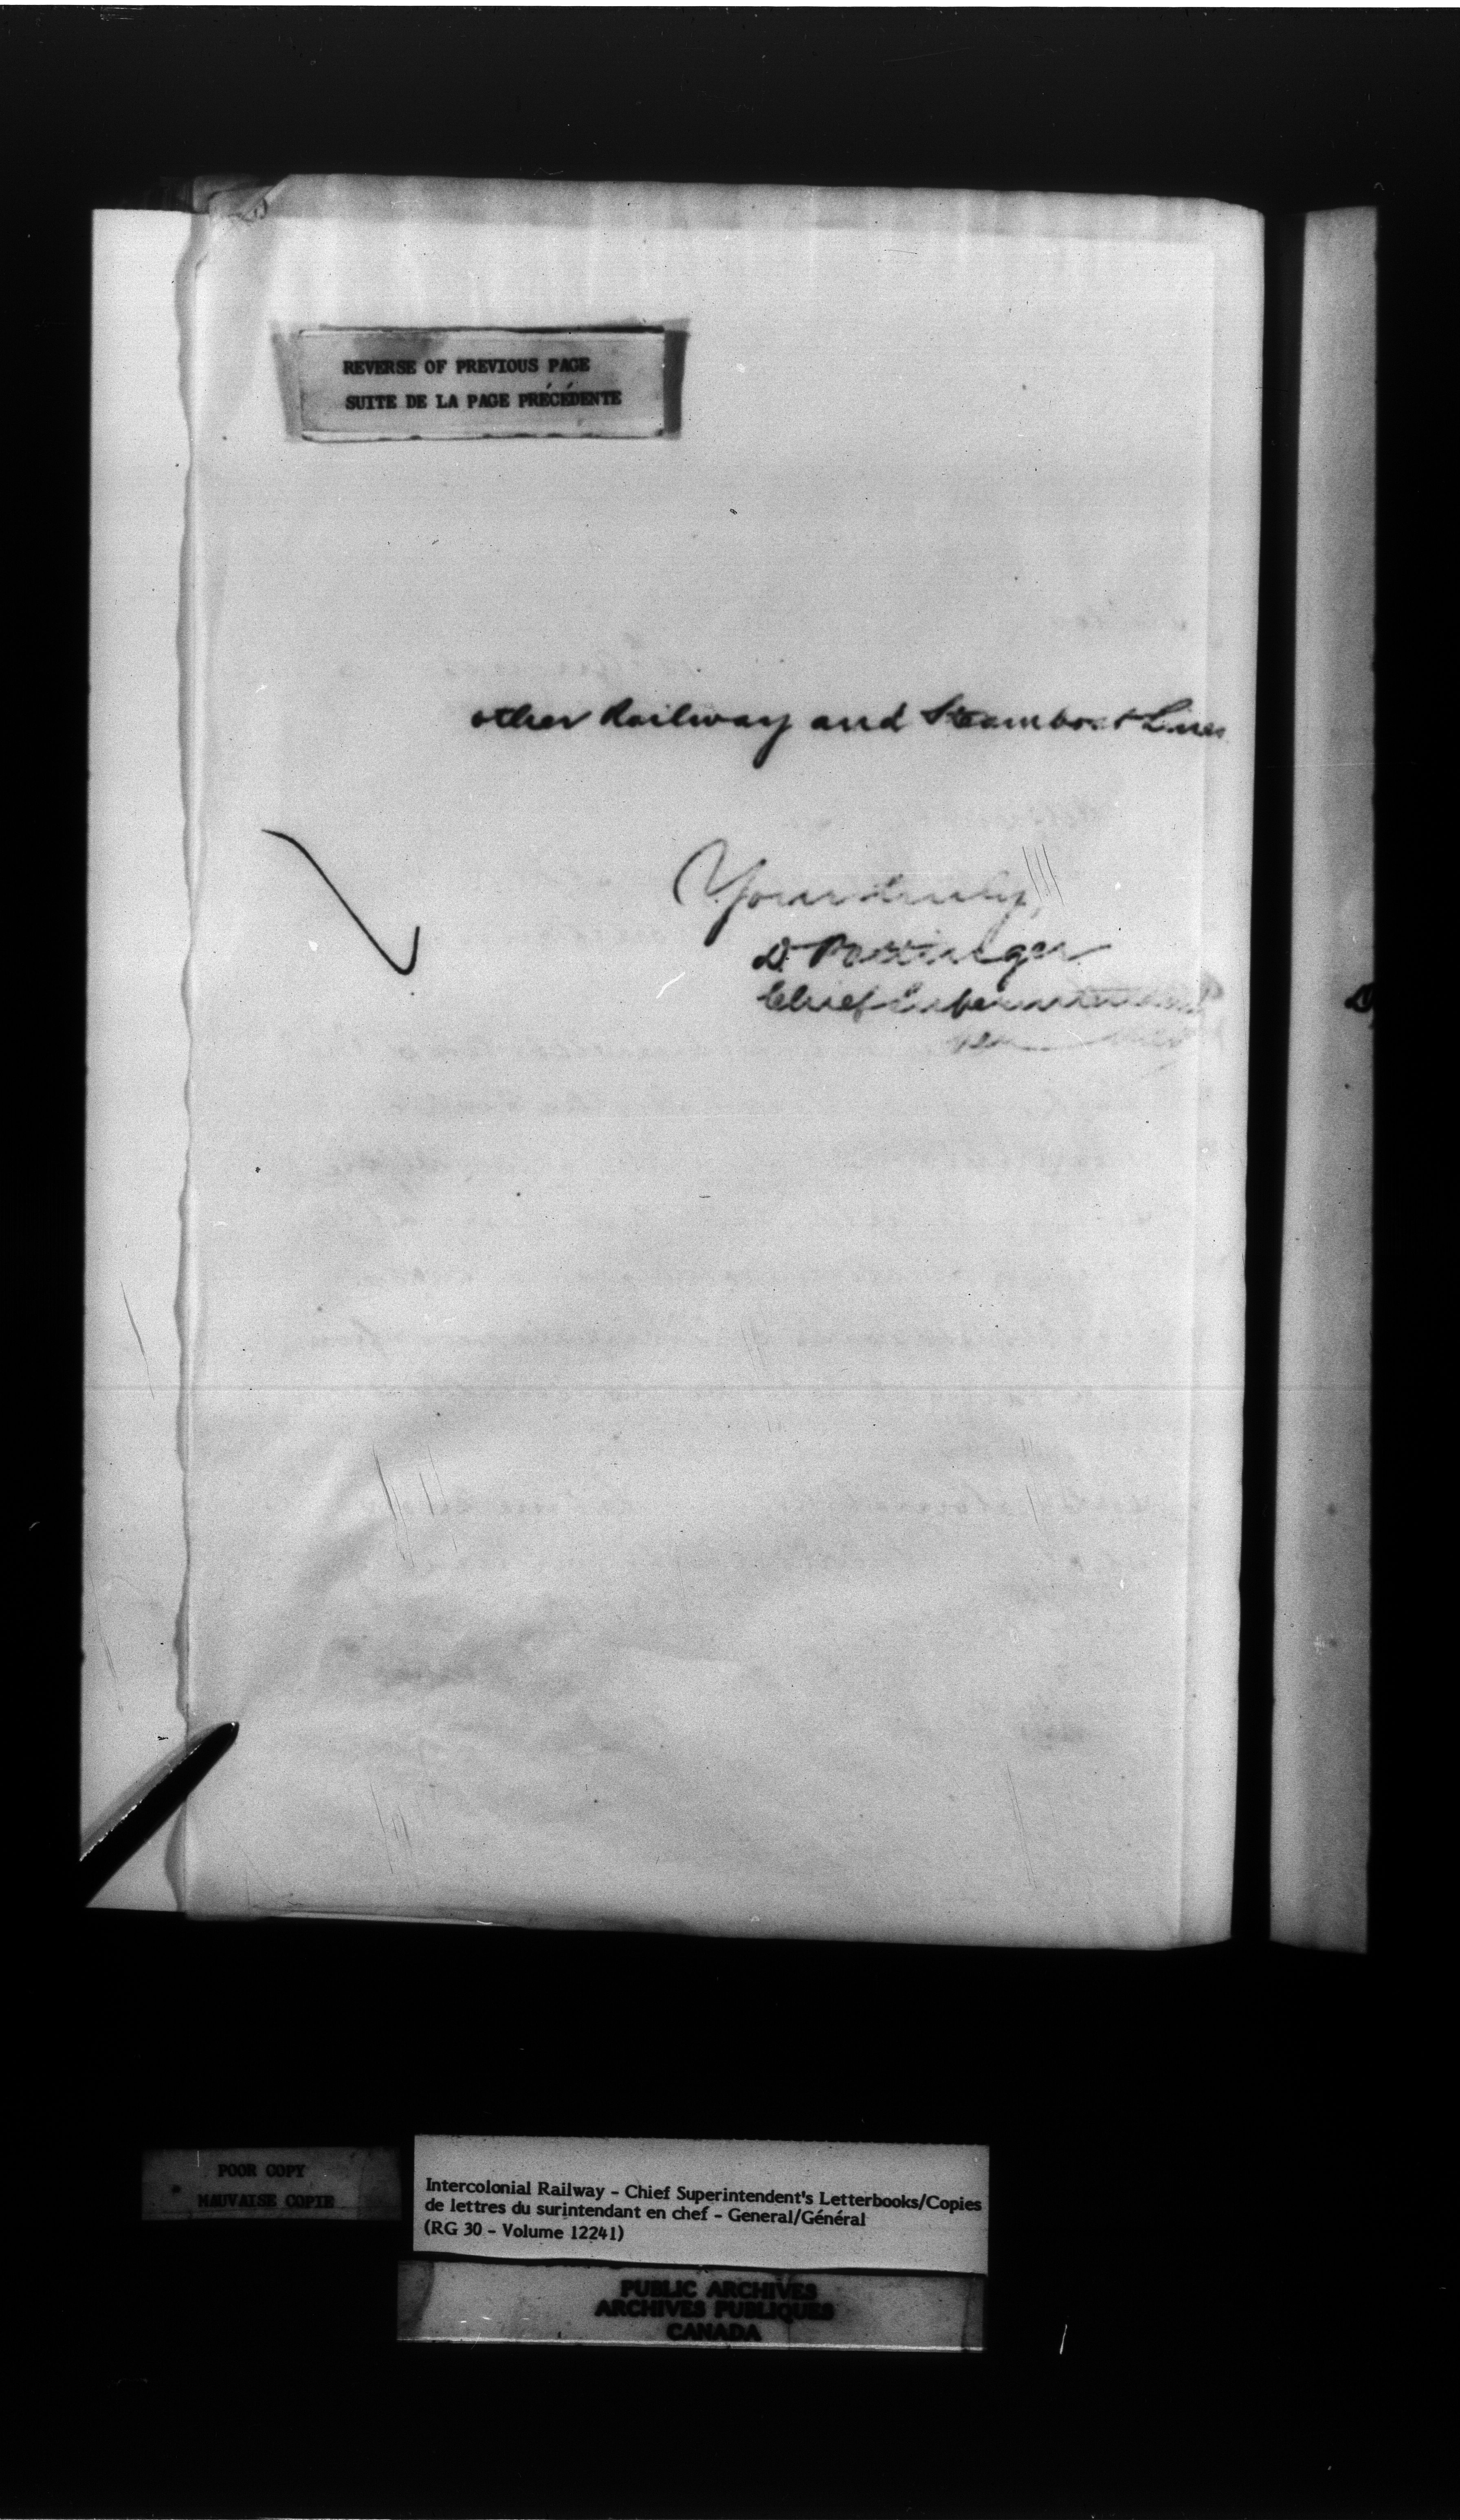 REVERSE OF PREVIOUS PAGE
SUITE DE LA PAGE PRÉCÉDENTE
other Railway and Steamboat Lines
Yours truly,
D. Pottinger
Chief Superintendent
POOR COPY
MAUVAISE COPIE
Intercolonial Railway - Chief Superintendent's Letterbooks/Copies
de lettres du surintendant en chef - General/Général
(RG 30 - Volume 12241)
PUBLIC ARCHIVES
ARCHIVES PUBLIQUES
CANADA